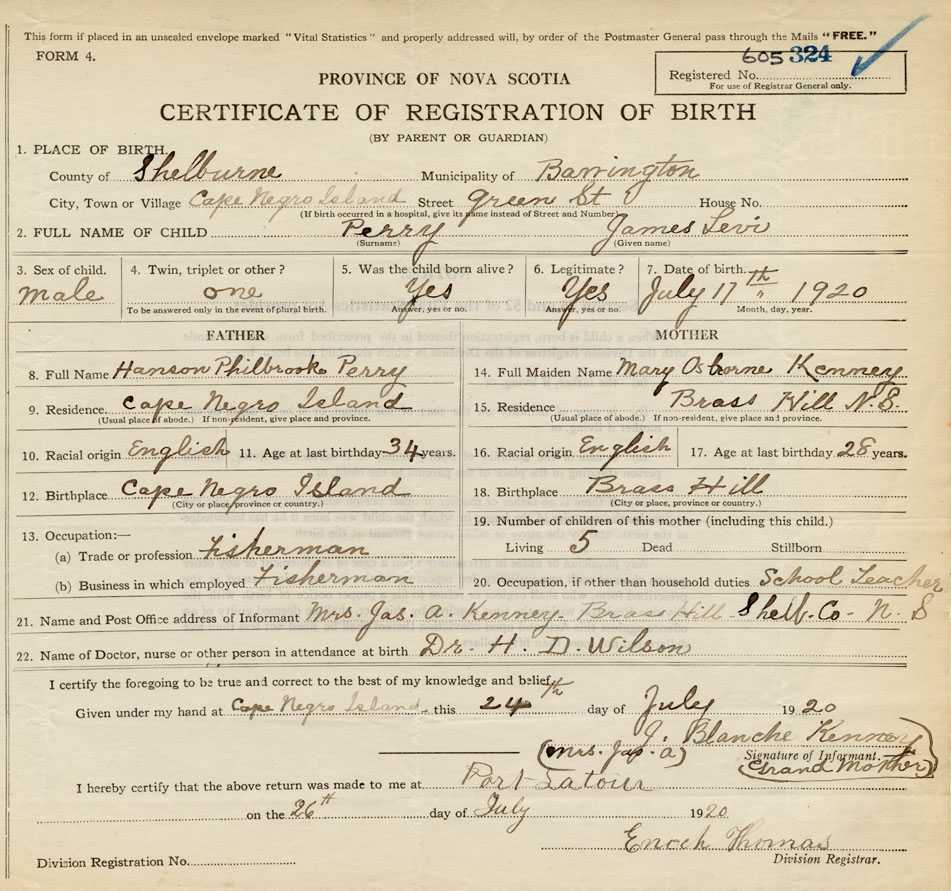 This form if placed in an unsealed envelope marked "Vital Statistics" and properly addressed will, by order of the Postmaster General pass through the Mails "FREE."
FORM 4.
605 324
Registered No.
For use of Registrar General only.
PROVINCE OF NOVA SCOTIA
CERTIFICATE OF REGISTRATION OF BIRTH
(BY PARENT OR GUARDIAN)
1. PLACE OF BIRTH.
County of Shelburne Municipality of Barrington
City, Town or Village Cape Negro Island Street Green St House No.
(If birth occurred in a hospital, give its name instead of Street and Number)
2. FULL NAME OF CHILD Perry James Levi
(Surname) (Given name)
3. Sex of child. 4. Twin, triplet or other? 5. Was the child born alive? 6. Legitimate? 7. Date of birth.
male one Yes Yes July 17th " 1920
To be answered only in the event of plural birth. Answer, yes or no. Answer, yes or no. Month, day, year.
FATHER MOTHER
8. Full Name Hanson Philbrooke Perry 14. Full Maiden Name Mary Osborne Kenney
9. Residence Cape Negro Island 15. Residence Brass Hill N.S.
(Usual place of abode.) If non-resident, give place and province. (Usual place of abode.) If non-resident, give place and province.
10. Racial origin English 11. Age at last birthday 34 years. 16. Racial origin English 17. Age at last birthday 28 years.
12. Birthplace Cape Negro Island 18. Birthplace Brass Hill
(City or place, province or country.) (City or place, province or country.)
13. Occupation:— 19. Number of children of this mother (including this child.)
(a) Trade or profession Fisherman Living 5 Dead Stillborn
(b) Business in which employed Fisherman 20. Occupation, if other than household duties School Teacher
21. Name and Post Office address of Informant Mrs. Jas. A. Kenney Brass Hill Shelb. Co - N. S
22. Name of Doctor, nurse or other person in attendance at birth Dr. H. D. Wilson
I certify the foregoing to be true and correct to the best of my knowledge and belief.
Given under my hand at Cape Negro Island this 24th day of July 1920
J. Blanche Kenney
(Mrs. Jas. A) Signature of Informant.
(Grand Mother)
I hereby certify that the above return was made to me at Port Latour
on the 26th day of July 1920
Enoch Thomas
Division Registration No. Division Registrar.